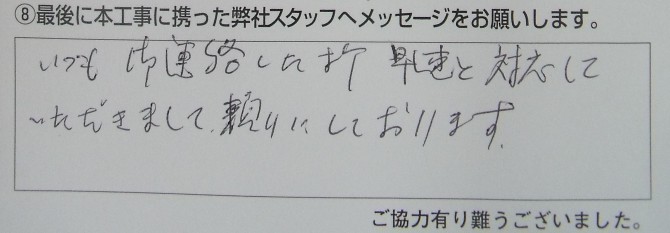 ⑧最後に本工事に携った弊社スタッフへメッセージをお願いします。
いつも御連絡した折 早速と対応して
いただきまして、頼りにしております。
ご協力有り難うございました。